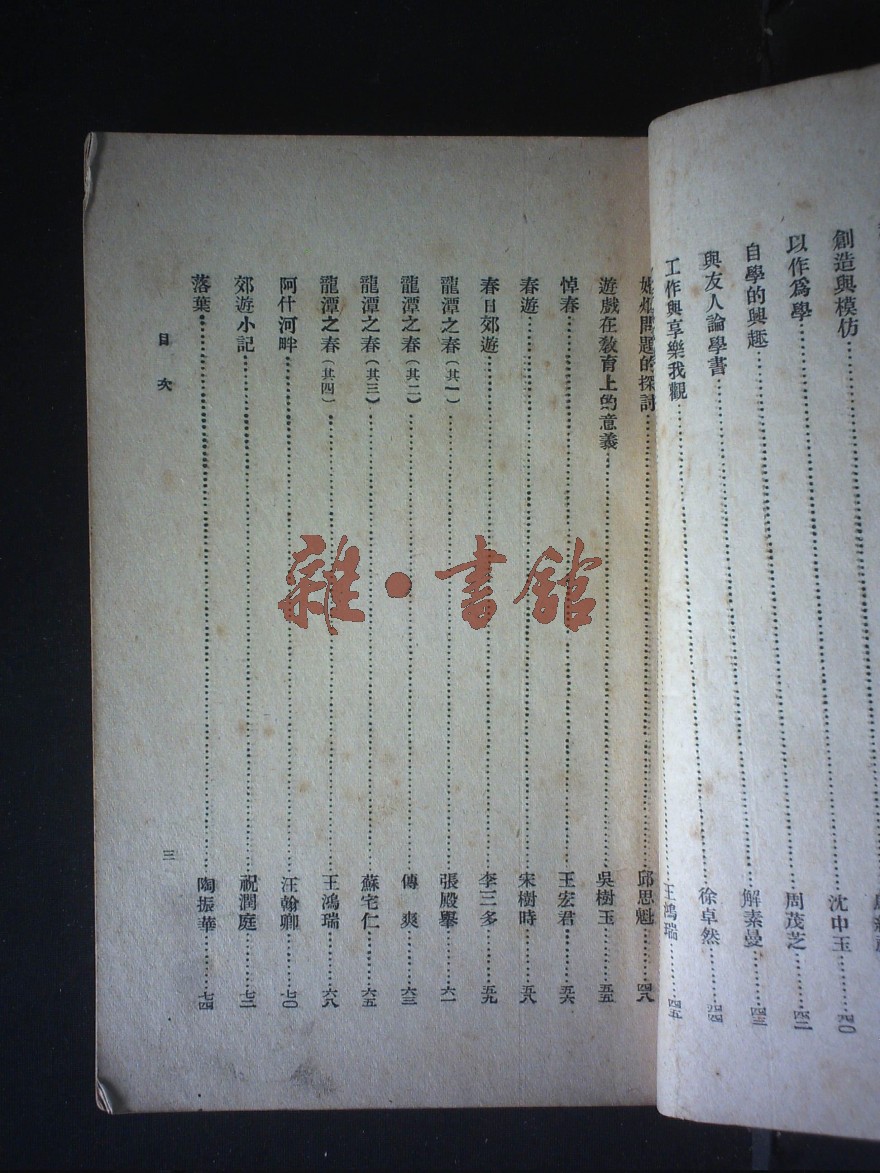 創造與模仿 沈中玉 四〇
以作爲學 周茂芝 四二
自學的興趣 解素曼 四三
與友人論學書 徐卓然 四四
工作與享樂我觀 王鴻瑞 四五
問題的探討 邱思魁 四八
遊戲在敎育上的意義 吳樹玉 五五
悼春 王宏君 五六
春遊 宋樹時 五八
春日郊遊 李三多 五九
龍潭之春(其一) 張殿舉 六一
龍潭之春(其二) 傅爽 六三
龍潭之春(其三) 蘇宅仁 六五
龍潭之春(其四) 王鴻瑞 六八
阿什河畔 汪翰卿 七〇
郊遊小記 祝潤庭 七二
落葉 陶振華 七四
目次
三
雜·書館